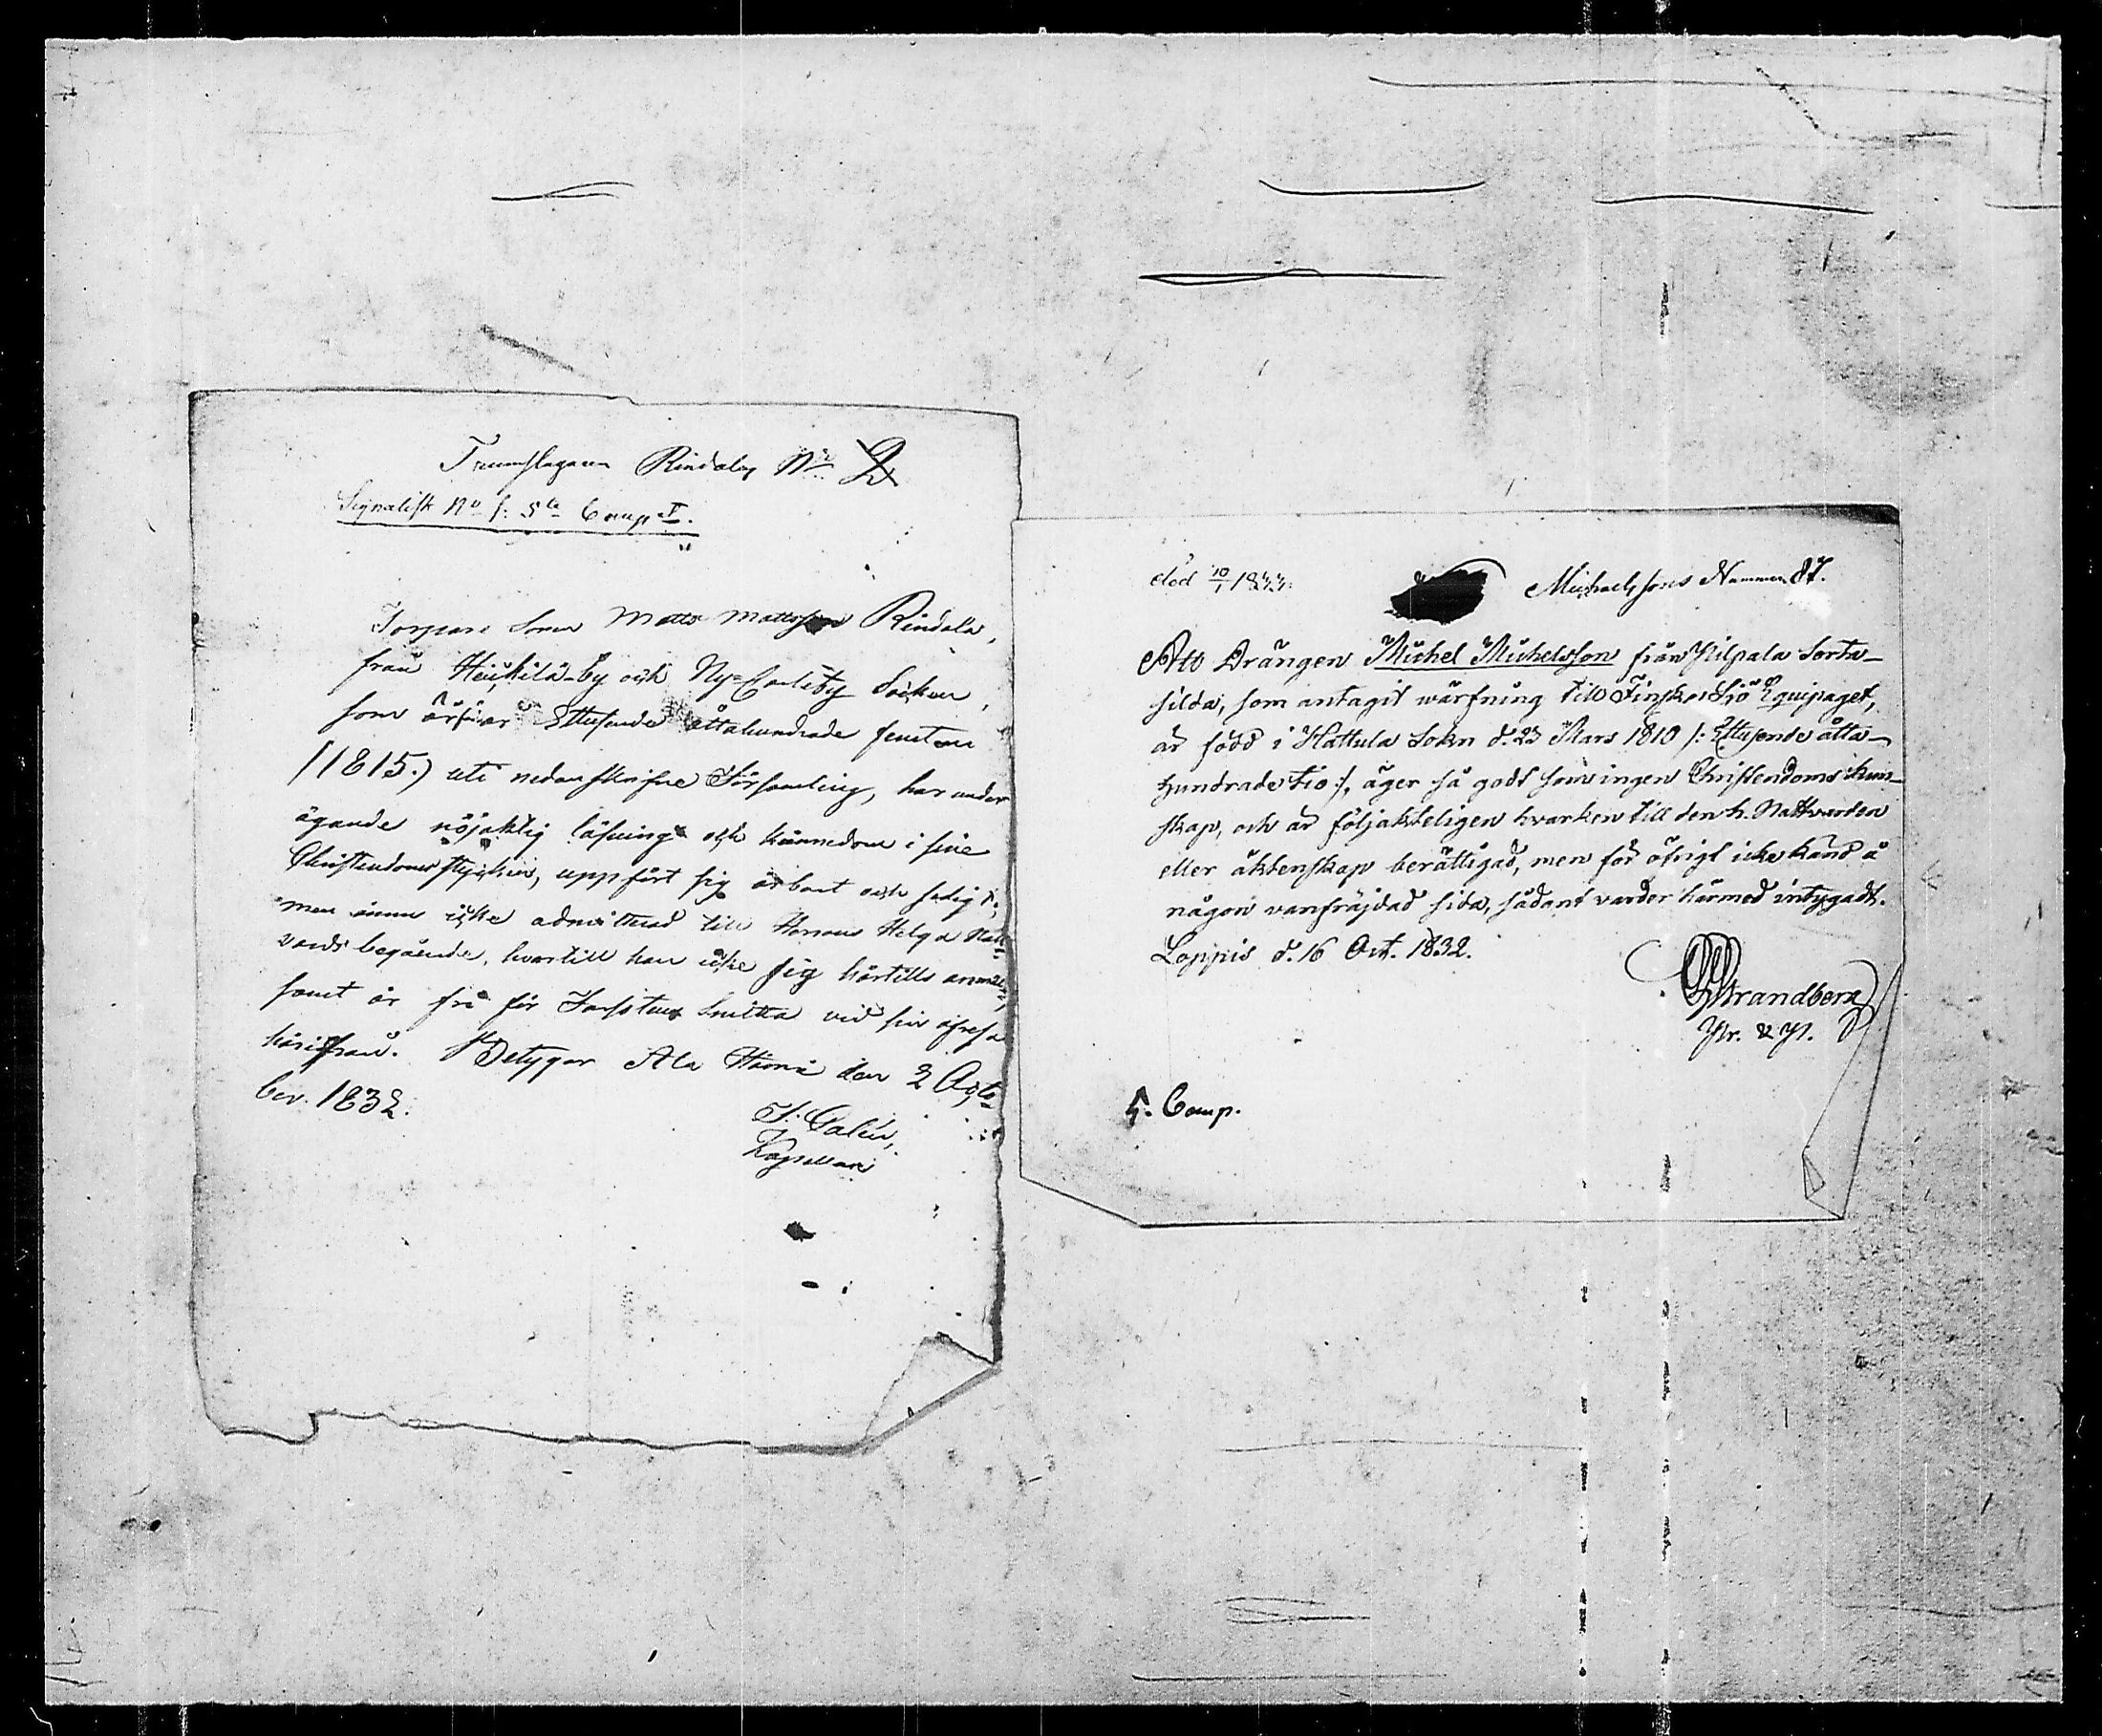 Trumslagaren Rindalas No 2
Signalist No 1: 5te Compt.
Torpare Sonen Matts Mattsson Rindala,
från Heickilä-by och Ny-Carleby Socken,
som är född Ettusende åttahundrade femton
(1815.) uti nedanskrifne Församling, har under
ägande nöjaktig läsning och kännedom i sine
Christendoms stycken, uppfört sig ärbart och sedigt,
men ännu icke admitterad till Herrans Helga Natt-
vards begående, hvartill han icke sig härtills anmält,
samt är fri för smitta vid sin afresa
härifrån. Betygar Ala Härmä den 2 Octo-
ber. 1832.
Kapellan
död 10/1 1833.
Michaelssons Nummer 87.
Att Drängen Michel Michelsson från Kilpala Sorta-
silda, som antagit wärfning till Finska Sjö Equipaget,
är född i Hattula Sokn d. 23 Mars 1810 /: Ettusende åtta-
hundrade tio:/, äger så godt som ingen Christendoms kun-
skap, och är följakteligen hvarken till den h. Nattvarden
eller äktenskap berättigad, men för öfrigt icke känd å
någon vanfräjdad sida, sådant varder härmed intygadt.
Loppis d. 16 Oct. 1832.
Strandberg
5. Comp.